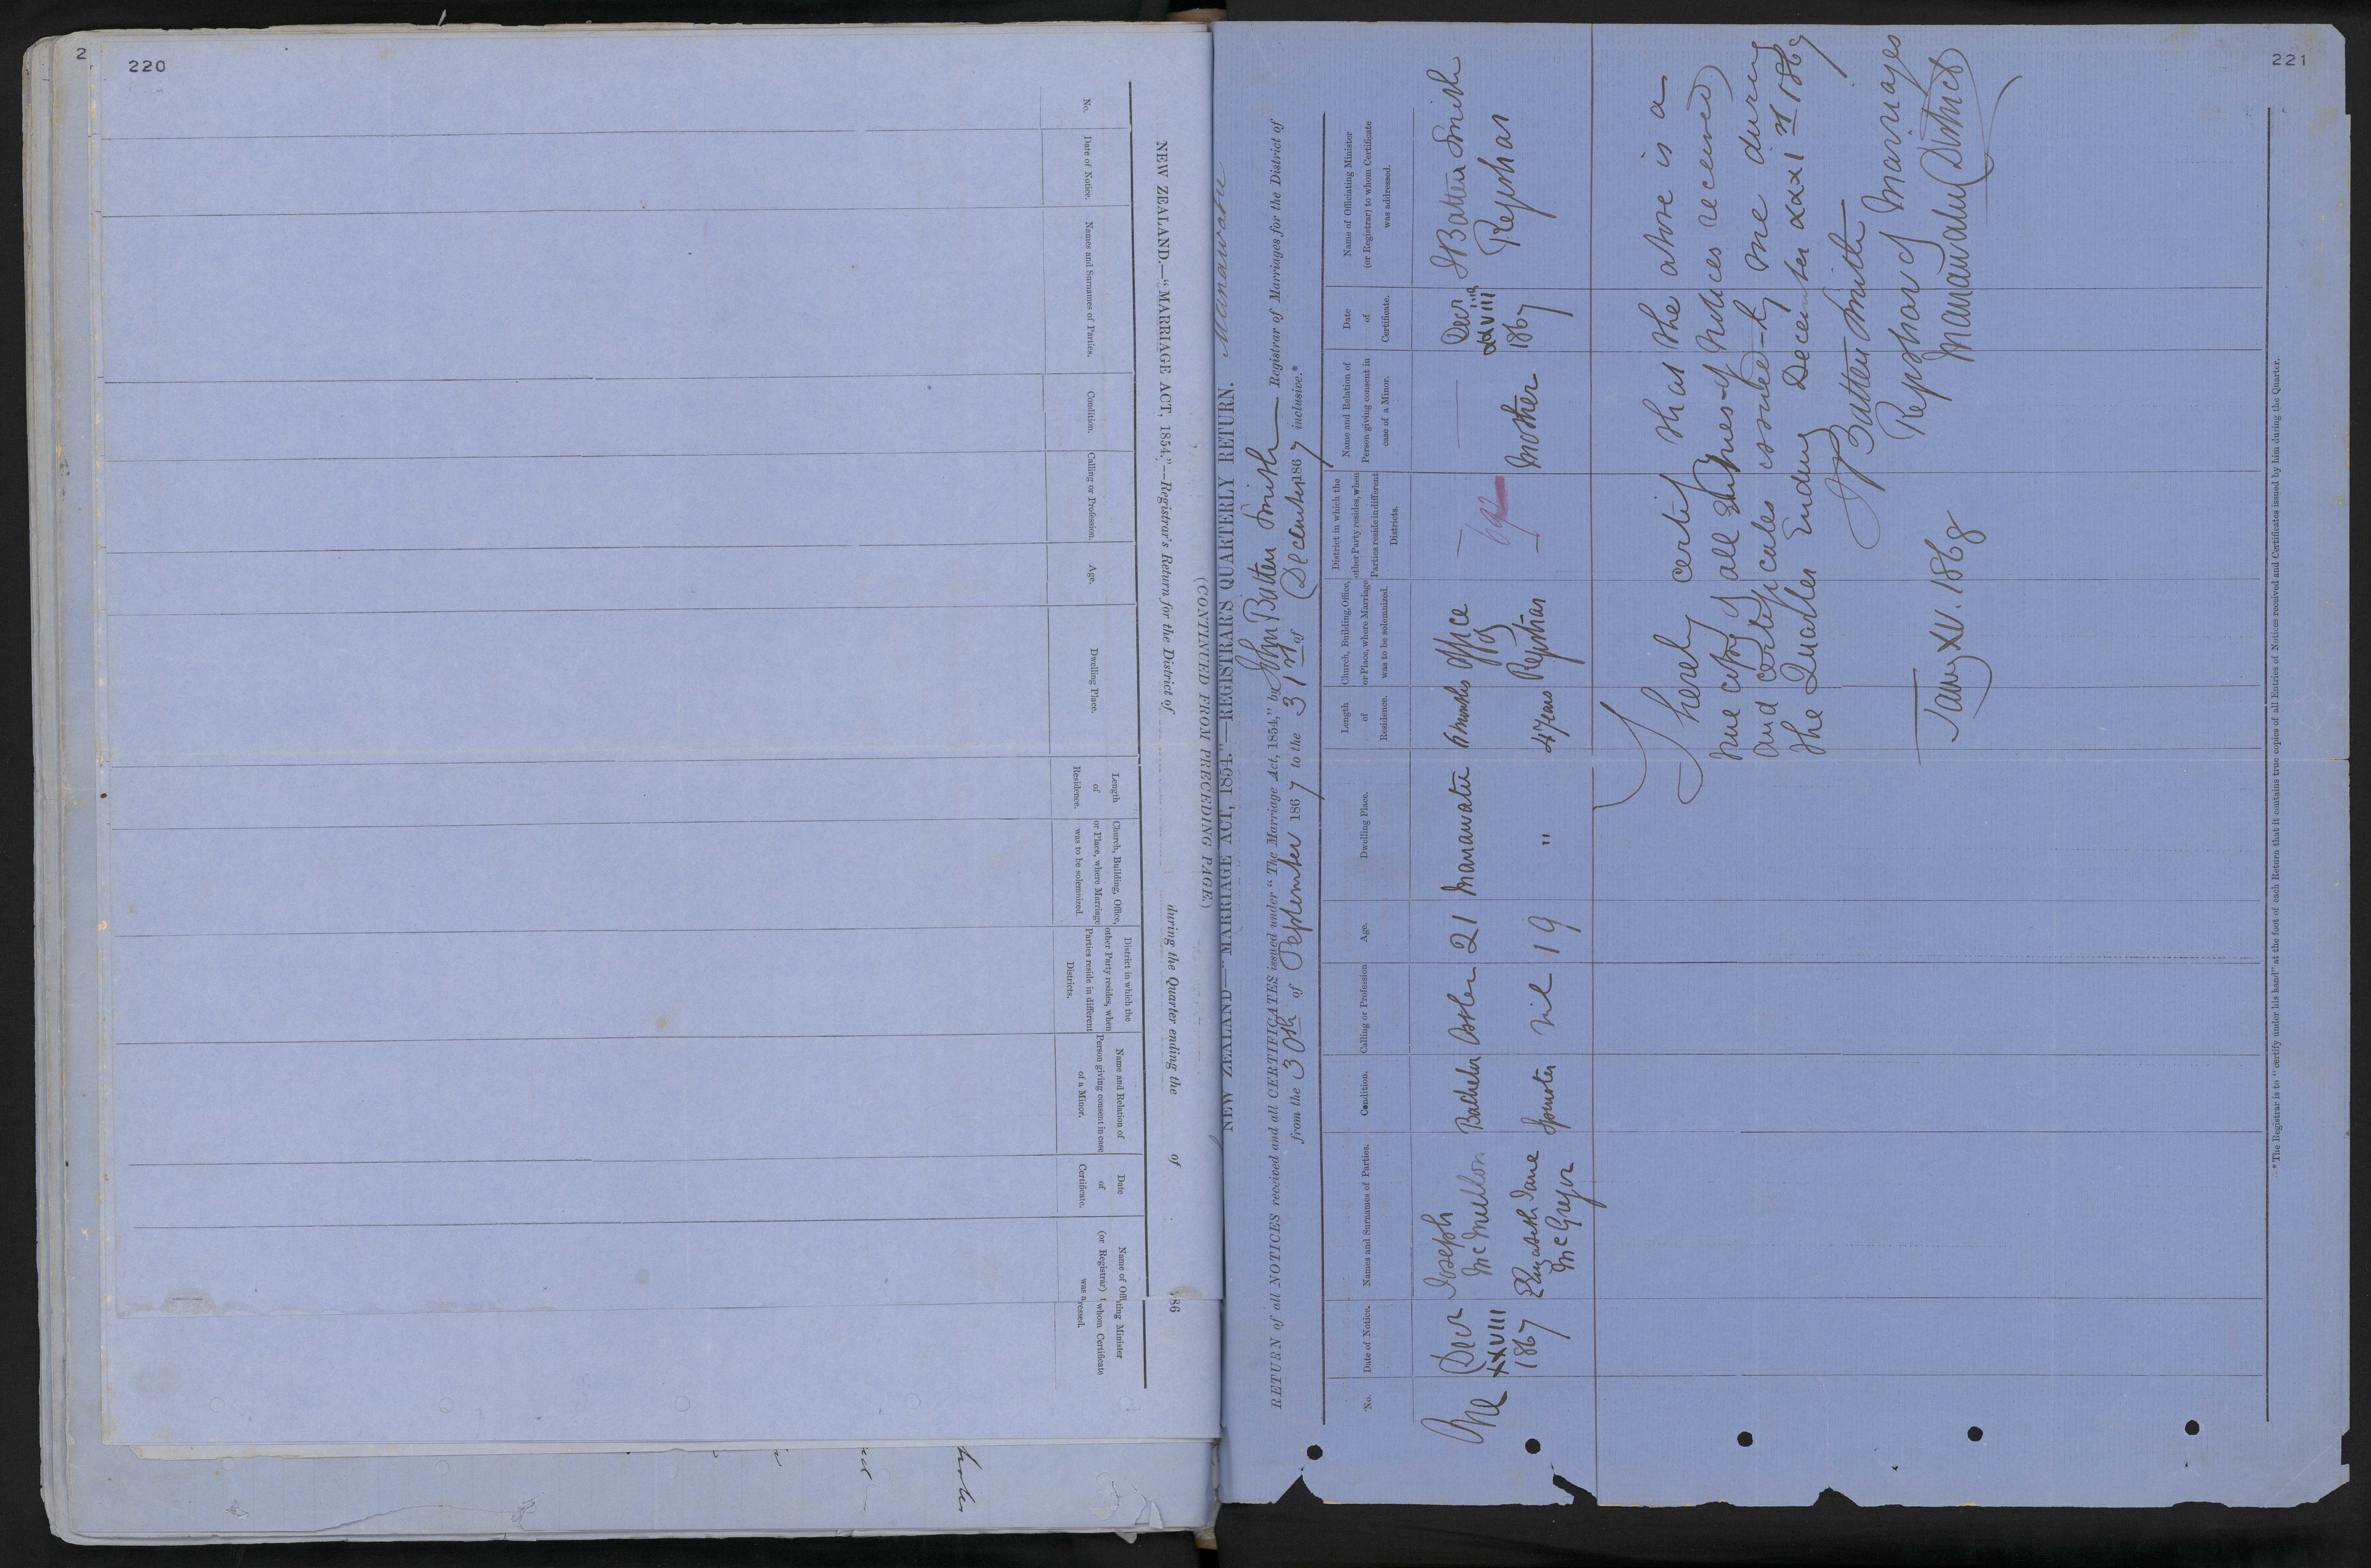 2
220
NEW ZEALAND.—"MARRIAGE ACT, 1854."—Registrar's Return for the District of during the Quarter ending the of 186
(CONTINUED FROM PRECEDING PAGE.)
No.
Date of Notice.
Names and Surnames of Parties.
Condition.
Calling or Profession.
Age.
Dwelling Place.
Length
of
Residence.
Church, Building, Office,
or Place, where Marriage
was to be solemnized.
District in which the
other Party resides, when
Parties reside in different
Districts.
Name and Relation of
Person giving consent in case
of a Minor.
Date
of
Certificate.
Name of Offi
ting Minister
(or Registrar) t
whom Certificate
was a
ressed.
221
NEW ZEALAND—"MARRIAGE ACT, 1854."—REGISTRAR'S QUARTERLY RETURN. Manawatu
RETURN of all NOTICES received and all CERTIFICATES issued under "The Marriage Act, 1854," by John Batten Smith Registrar of Marriages for the District of
from the 30th of September 1867 to the 31st of December 1867 inclusive.*
No.
Date of Notice.
Names and Surnames of Parties.
Condition.
Calling or Profession
Age.
Dwelling Place.
Length
of
Residence.
Church, Building, Office,
or Place, where Marriage
was to be solemnized.
District in which the
other Party resides, when
Parties reside in different
Districts.
Name and Relation of
Person giving consent in
case of a Minor.
Date
of
Certificate.
Name of Officiating Minister
(or Registrar) to whom Certificate
was addressed.
One
Decr
XXVIII
1867
Joseph
McMullon
Bachelor
Ostler
21
Manawatu
6 Months
Office
of
Registrar
Decr
xxviii
1867
J Batten Smith
Registrar
Elizabeth Jane
McGregor
Spinster
nil
19
"
4 Years
Mother
I hereby certify that the above is a
true copy of all Entries of Notices received
and certificates issued by me during
the Quarter Ending December xxxist 1867
J Batten Smith
Registrar of Marriages
Manawatu District
Jany XV. 1868
*The Registrar is to "certify under his hand" at the foot of each Return that it contains true copies of all Entries of Notices received and Certificates issued by him during the Quarter.